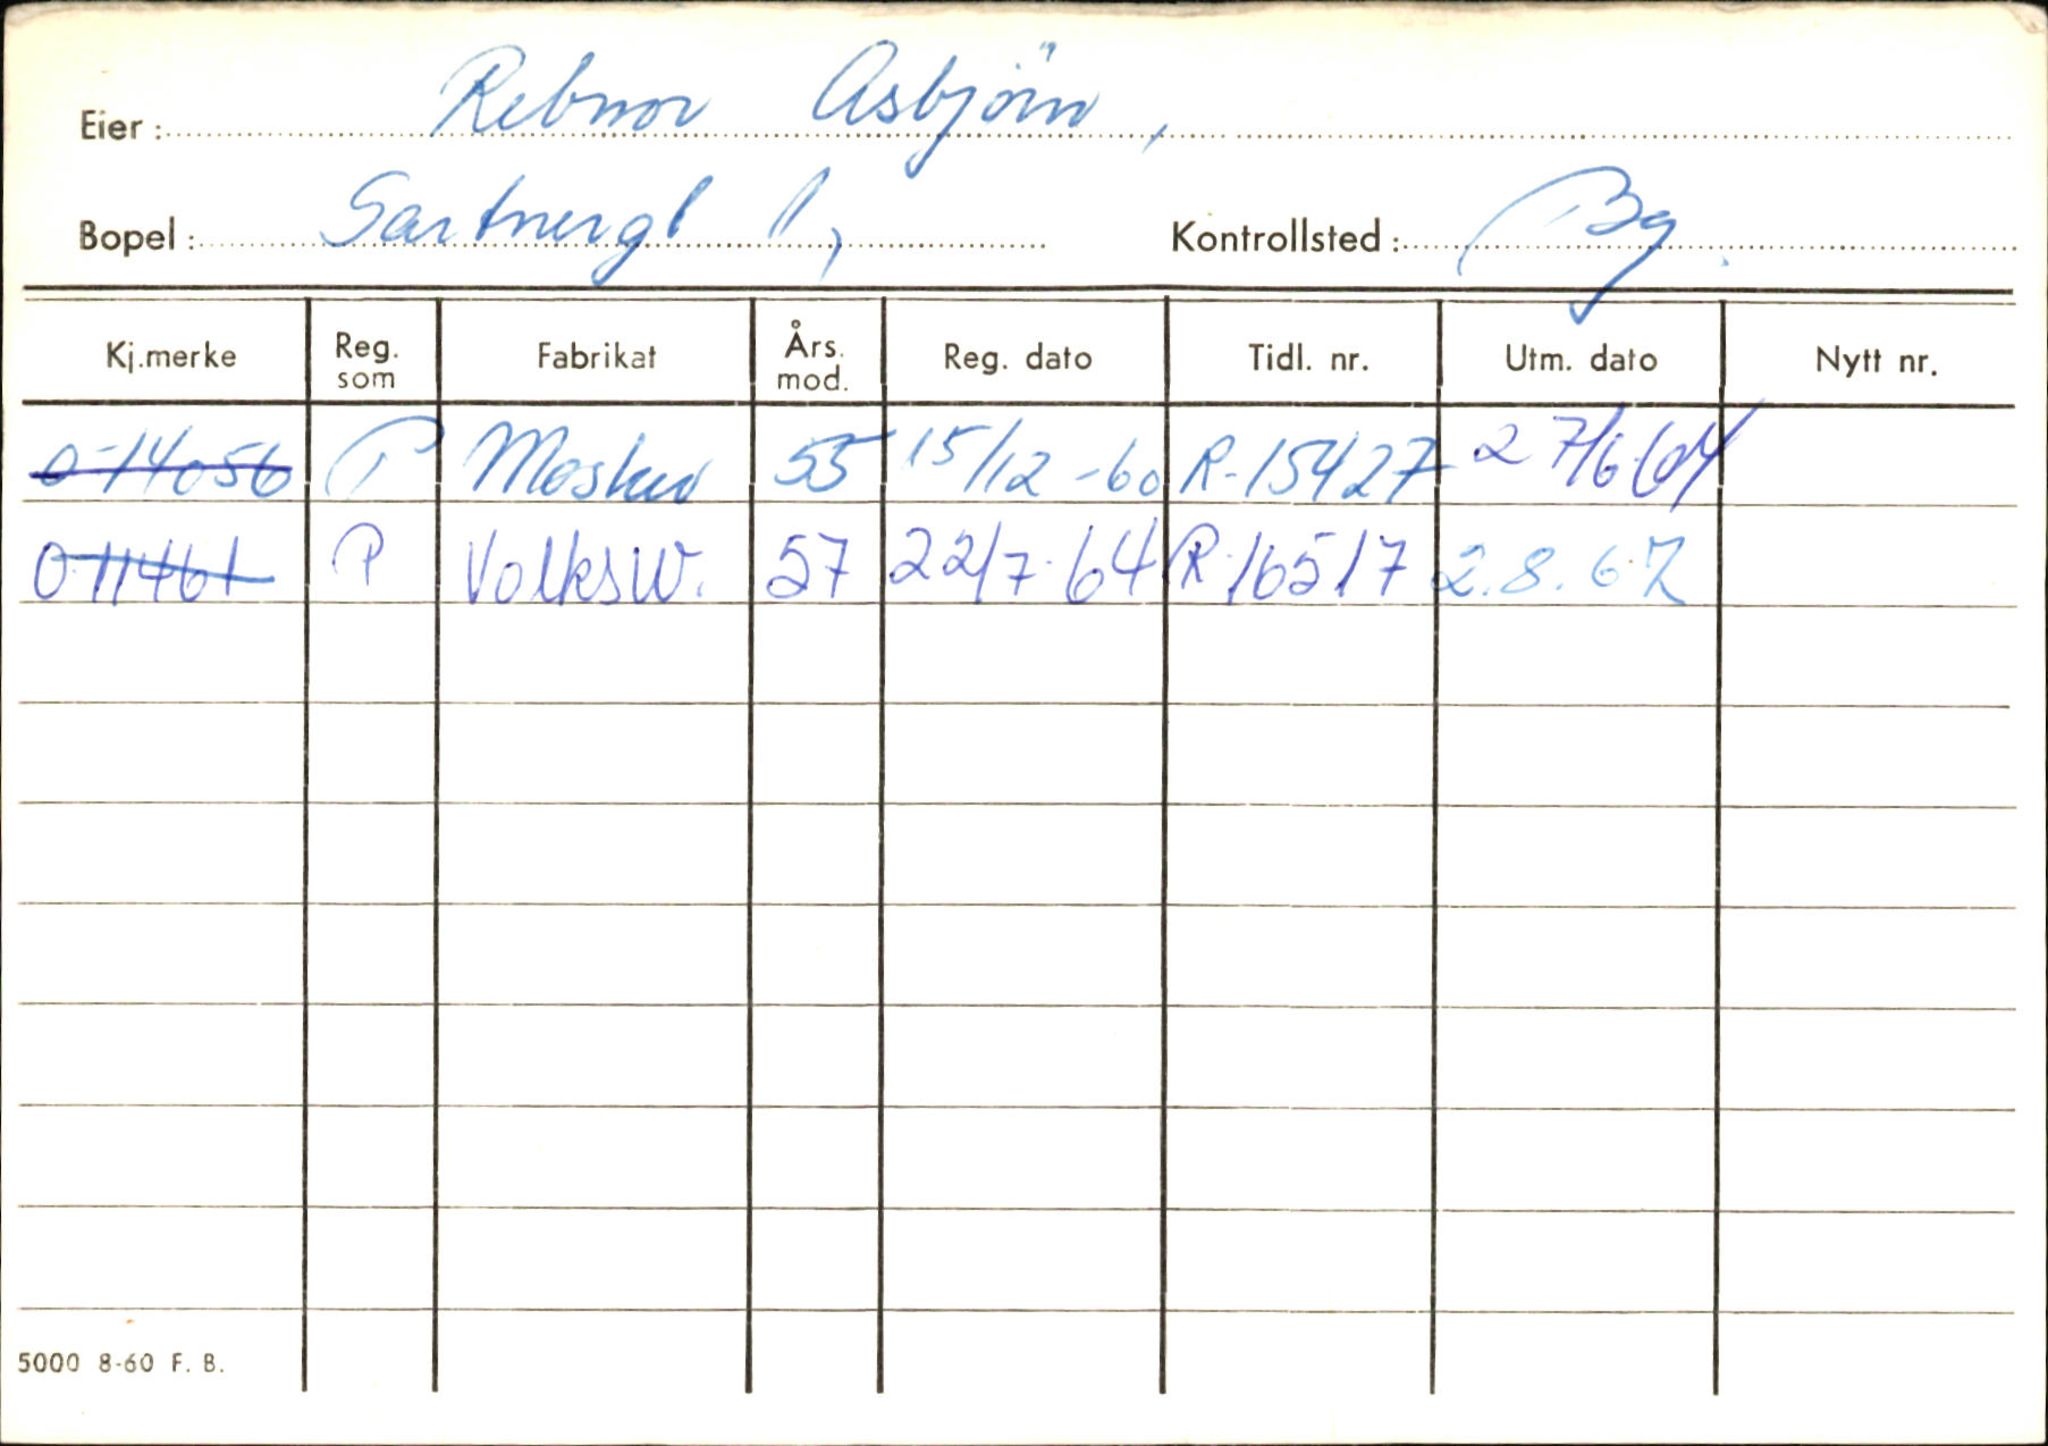 Eier: Rebnor Asbjörn,
Bopel: Gartnergt 1, Kontrollsted: Bg.
Kj.merke Reg. som Fabrikat Års. mod. Reg. dato Tidl. nr. Utm. dato Nytt nr.
O-14056 P Moskw 55 15/12-60 R-15427 27/6-64
O-11461 P VolksW. 57 22/7-64 R-16517 2.8.67
5000 8-60 F. B.